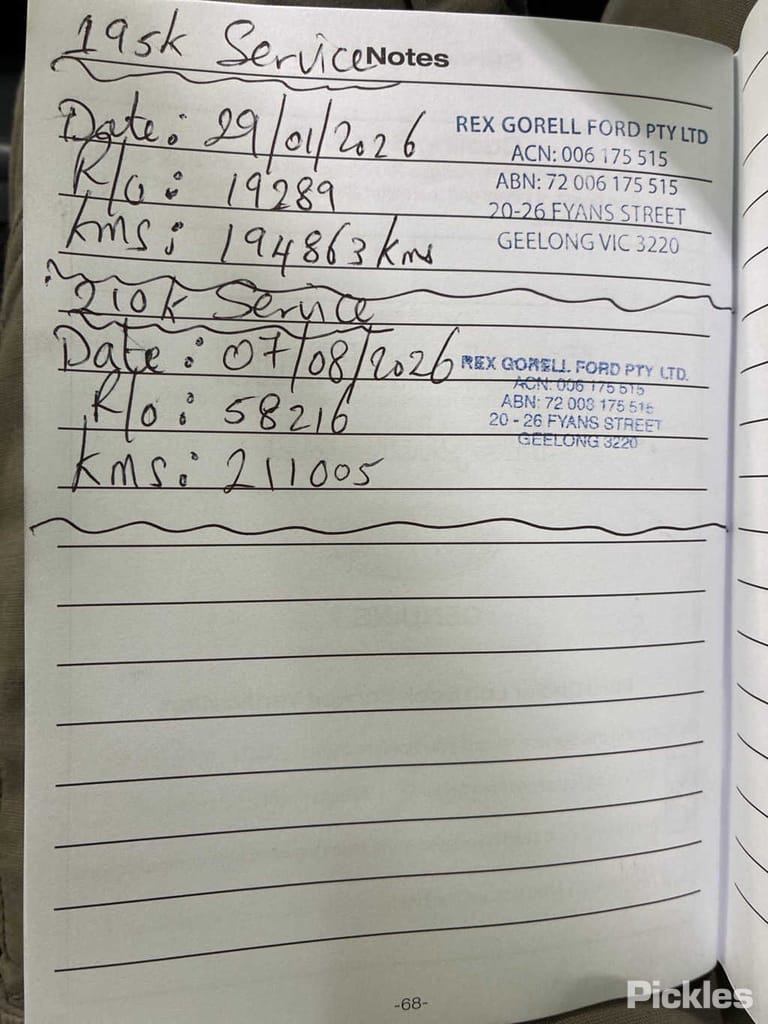 195k Service Notes
Date: 29/01/2026
R/o: 19289
kms: 194863 kms
REX GORELL FORD PTY LTD
ACN: 006 175 515
ABN: 72 006 175 515
20-26 FYANS STREET
GEELONG VIC 3220
210k Service
Date: 07/08/2026
R/o: 58216
kms: 211005
REX GORELL FORD PTY LTD.
ACN: 006 175 515
ABN: 72 006 175 515
20 - 26 FYANS STREET
GEELONG 3220
-68-
Pickles